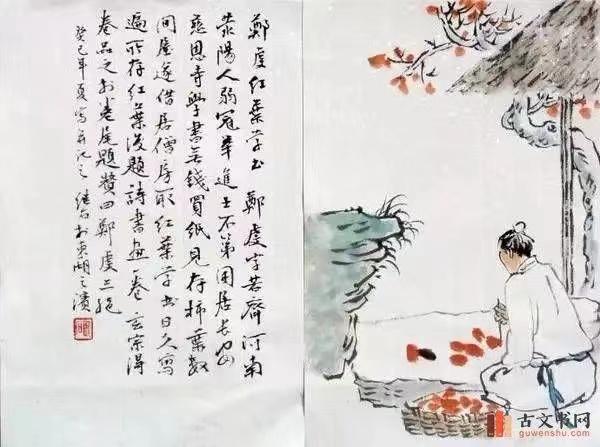 鄭虔紅葉學書 鄭虔字若齋河南
荥陽人弱冠舉進士不第困居長安
慈恩寺學書無錢買紙見存柿葉數
间屋遂借居僧房取紅葉學書日久寫
遍所存紅葉後題詩書畫一卷 玄宗得
卷品之於卷尾題贊曰鄭虔三絕
癸巳年夏寫并記之 於東湖之濱
古文书网
guwenshu.com